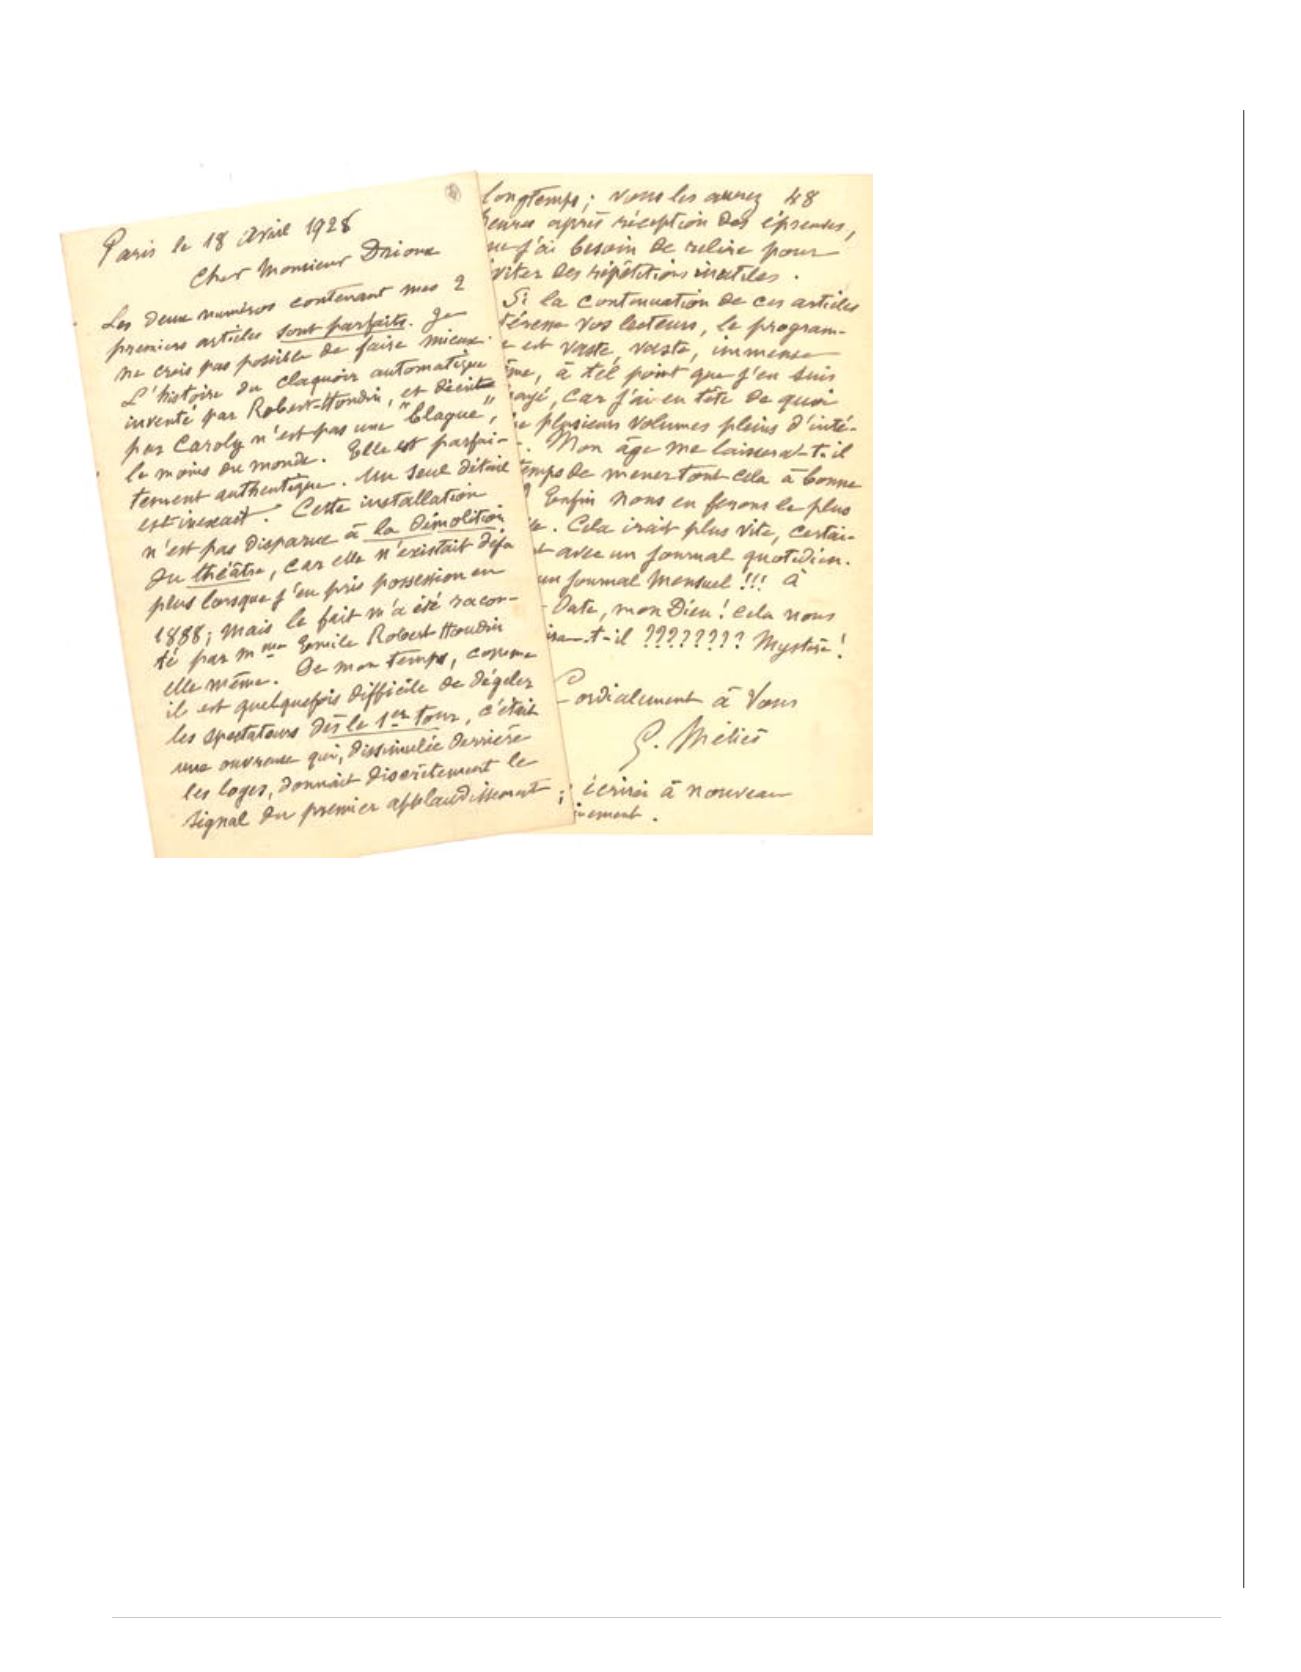 Paris le 18 Avril 1928
Cher Monsieur Drioux
Les deux numéros contenant mes 2
premiers articles sont parfaits. Je
ne crois pas possible de faire mieux.
L'histoire du claquoir automatique
inventé par Robert-Houdin, et décrite
par Caroly n'est pas une "blague",
le moins du monde. Elle est parfai-
tement authentique. Un seul détail
est inexact. Cette installation
n'est pas disparue à la démolition
du théâtre, car elle n'existait déjà
plus lorsque j'en pris possession en
1888; mais le fait m'a été racon-
té par Mme Emile Robert-Houdin
elle même. De mon temps, comme
il est quelquefois difficile de dégeler
les spectateurs dès le 1er tour, c'était
une ouvreuse qui, dissimulée derrière
les loges, donnait discrètement le
signal du premier applaudissement;
longtemps; vous les aurez 48
heures après réception des épreuves,
ue j'ai besoin de relire pour
viter des répétitions inutiles.
Si la continuation de ces articles
téresse vos lecteurs, le program-
e est vaste, vaste, immense
ême, à tel point que j'en suis
rayé, car j'ai en tête de quoi
e plusieurs volumes pleins d'inté-
. Mon âge me laissera-t-il
temps de mener tout cela à bonne
? Enfin nous en ferons le plus
le. Cela irait plus vite, certai-
t avec un journal quotidien.
un journal mensuel !!! à
- Date, mon Dieu! cela nous
-t-il ???????? Mystère!
Cordialement à Vous
G. Méliès
écrirai à nouveau
ement.